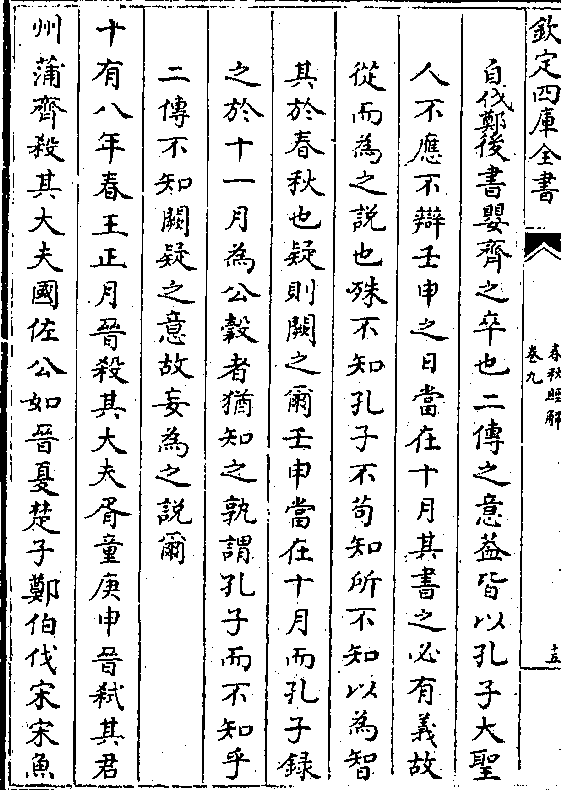 欽定四庫全書
春秋經解
卷九
十五
自伐鄭後書嬰齊之卒也二傳之意葢皆以孔子大聖
人不應不辯壬申之日當在十月其書之必有義故
從而為之説也殊不知孔子不苟知所不知以為智
其於春秋也疑則闕之爾壬申當在十月而孔子録
之於十一月為公穀者猶知之孰謂孔子而不知乎
二傳不知闕疑之意故妄為之説爾
十有八年春王正月晉殺其大夫胥童庚申晉弑其君
州蒲齊殺其大夫國佐公如晉夏楚子鄭伯伐宋宋魚